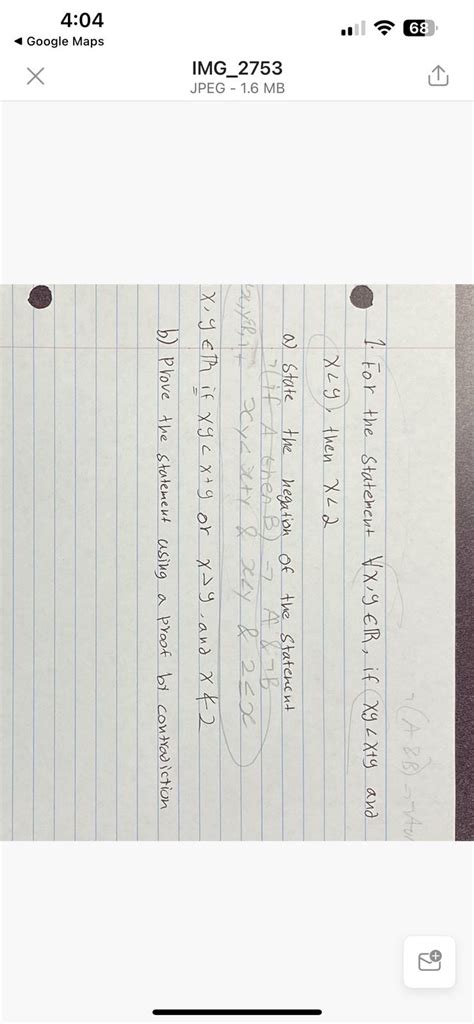 4:04
68
◀ Google Maps
IMG_2753
JPEG - 1.6 MB
¬(A&B)→¬A or
1. For the statement ∀x,y∈ℝ, if xy<x+y and
x<y, then x<2
a) State the negation of the statement
¬(if A then B) → A & ¬B
xy<x+y & x<y & 2≤x
x,y∈ℝ if xy<x+y or x>y, and x≮2
b) Prove the statement using a proof by contradiction